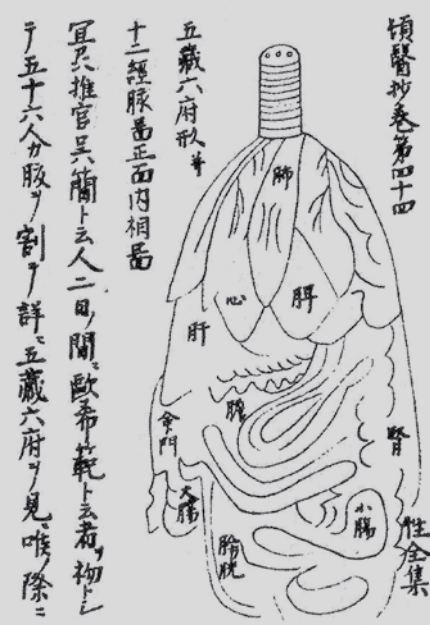 頓醫抄巻第四十四
性全集
五藏六府形并
十二經脉啚正面内相啚
宜州推官呉簡ト云人二日ノ間ニ歐希範ト云者ヲ初トシ
テ五十六人カ腹ヲ割テ詳ニ五藏六府ヲ見喉ノ際ニ
肺
心
脾
肝
膽
腎
命門
大腸
小腸
膀胱